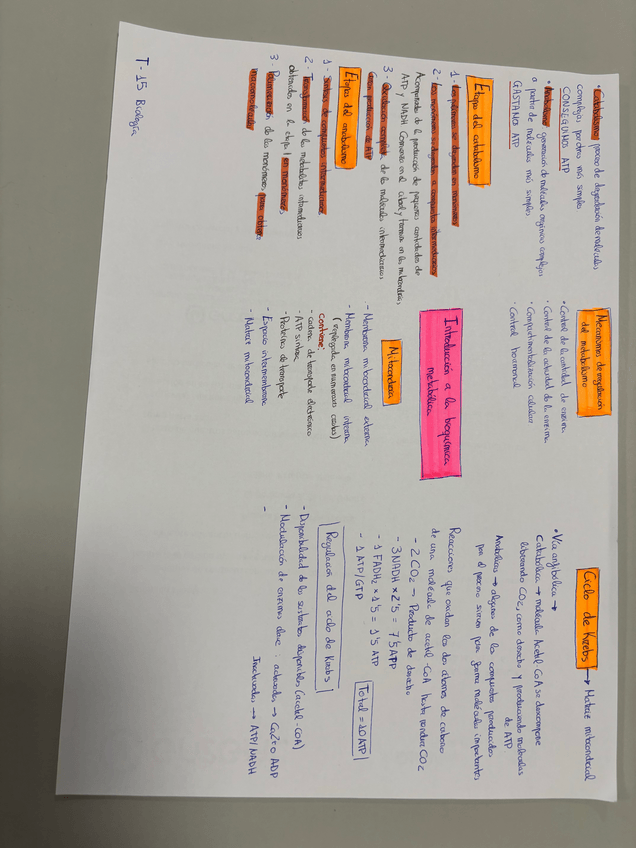 • Catabolismo: proceso de degradación de moléculas
complejas por otras más simples
CONSEGUIMOS ATP
• Anabolismo: generación de moléculas orgánicas complejas
a partir de moléculas más simples
GASTANDO ATP
Etapas del catabolismo
1 - Los polímeros se degradan en monómeros
2 - Los monómeros se degradan a compuestos intermediarios
Acompañado de la producción de pequeñas cantidades de
ATP y NADH. Comienza en el citosol y termina en la mitocondria
3 - Oxidación completa de las moléculas intermediarias.
Gran producción de ATP
Etapas del anabolismo
1 - Síntesis de compuestos intermediarios
2 - Transformación de los metabolitos intermediarios
obtenidos en la etapa 1 en monómeros
3 - Polimerización de los monómeros para obtener
macromoléculas
T-15 Biología
Mecanismos de regulación
del metabolismo
• Control de la cantidad de enzima
• Control de la actividad de la enzima
• Compartimentalización celular
• Control hormonal
Introducción a la bioquímica
metabólica
Mitocondria
- Membrana mitocondrial externa
- Membrana mitocondrial interna
(replegada en numerosas crestas)
Contiene:
- cadena de transporte electrónico
- ATP sintasa
- Proteínas de transporte
- Espacio intermembrana
- Matriz mitocondrial
Ciclo de Krebs → Matriz mitocondrial
• Vía anfibólica →
Catabólica → molécula Acetil CoA se descompone
liberando CO2, como desecho y produciendo moléculas
de ATP
Anabólica → algunos de los compuestos producidos
por el proceso sirven para formar moléculas importantes
Reacciones que oxidan los dos átomos de carbono
de una molécula de acetil-CoA hasta producir CO2
- 2 CO2 → Producto de desecho
- 3 NADH x 2'5 = 7'5 ATP
- 1 FADH2 x 1'5 = 1'5 ATP
- 1 ATP/GTP
Total = 10 ATP
Regulación del ciclo de Krebs
- Disponibilidad de los sustratos disponibles (acetil-COA)
- Modulación de enzimas clave: activados → Ca2+ o ADP
Inactivados → ATP/NADH
-